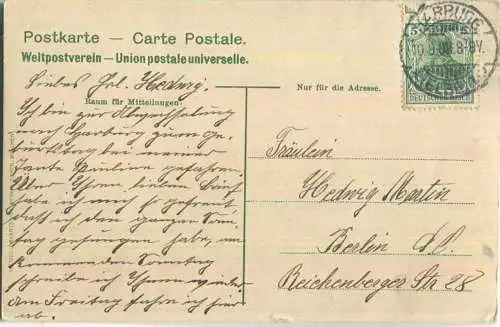 Postkarte — Carte Postale.
Weltpostverein — Union postale universelle.
Liebes Frl. Hedwig!
Raum für Mitteilungen.
Nur für die Adresse.
Ich bin zur Abwechslung
nach Harburg zum Ge-
burtstag bei meiner
Tante Pauline gefahren.
Über Ihren lieben Brief
habe ich mich so gefreut
daß ich den ganzen Sonn
tag gesungen habe, am
kommenden Sonntag
schreibe ich Ihnen wieder
Am Freitag fahre ich hier
ab.
5
DEUTSCHES REICH
Fräulein
Hedwig Martin
Berlin
Reichenberger Str 28